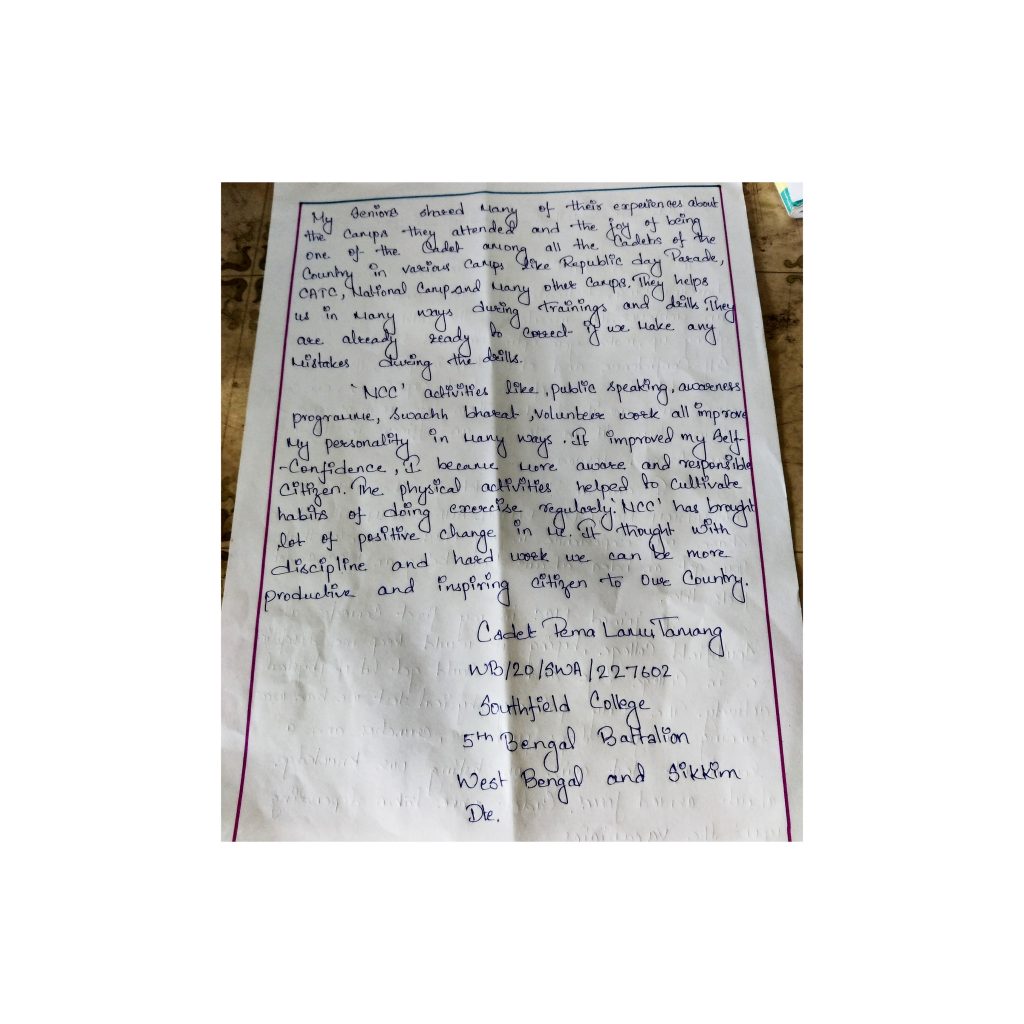 My Seniors shared many of their experiences about
the Camps they attended and the joy of being
one of the Cadet among all the Cadets of the
Country in various Camps like Republic day Parade,
CATC, National Camp and many other Camps. They helps
us in many ways during trainings and drills. They
are already ready to correct if we make any
mistakes during the drills.
'NCC' activities like, public speaking, awareness
programme, Swachh bharat, Volunteer work all improve
my personality in many ways. It improved my Self-
-Confidence, I became more aware and responsible
Citizen. The physical activities helped to cultivate
habits of doing exercise regularly. 'NCC' has brought
lot of positive change in me. It thought with
discipline and hard work we can be more
productive and inspiring citizen to our Country.
Cadet Pema Tamang
WB/20/SWA/227602
Southfield College
5th Bengal Battalion
West Bengal and Sikkim
Dte.